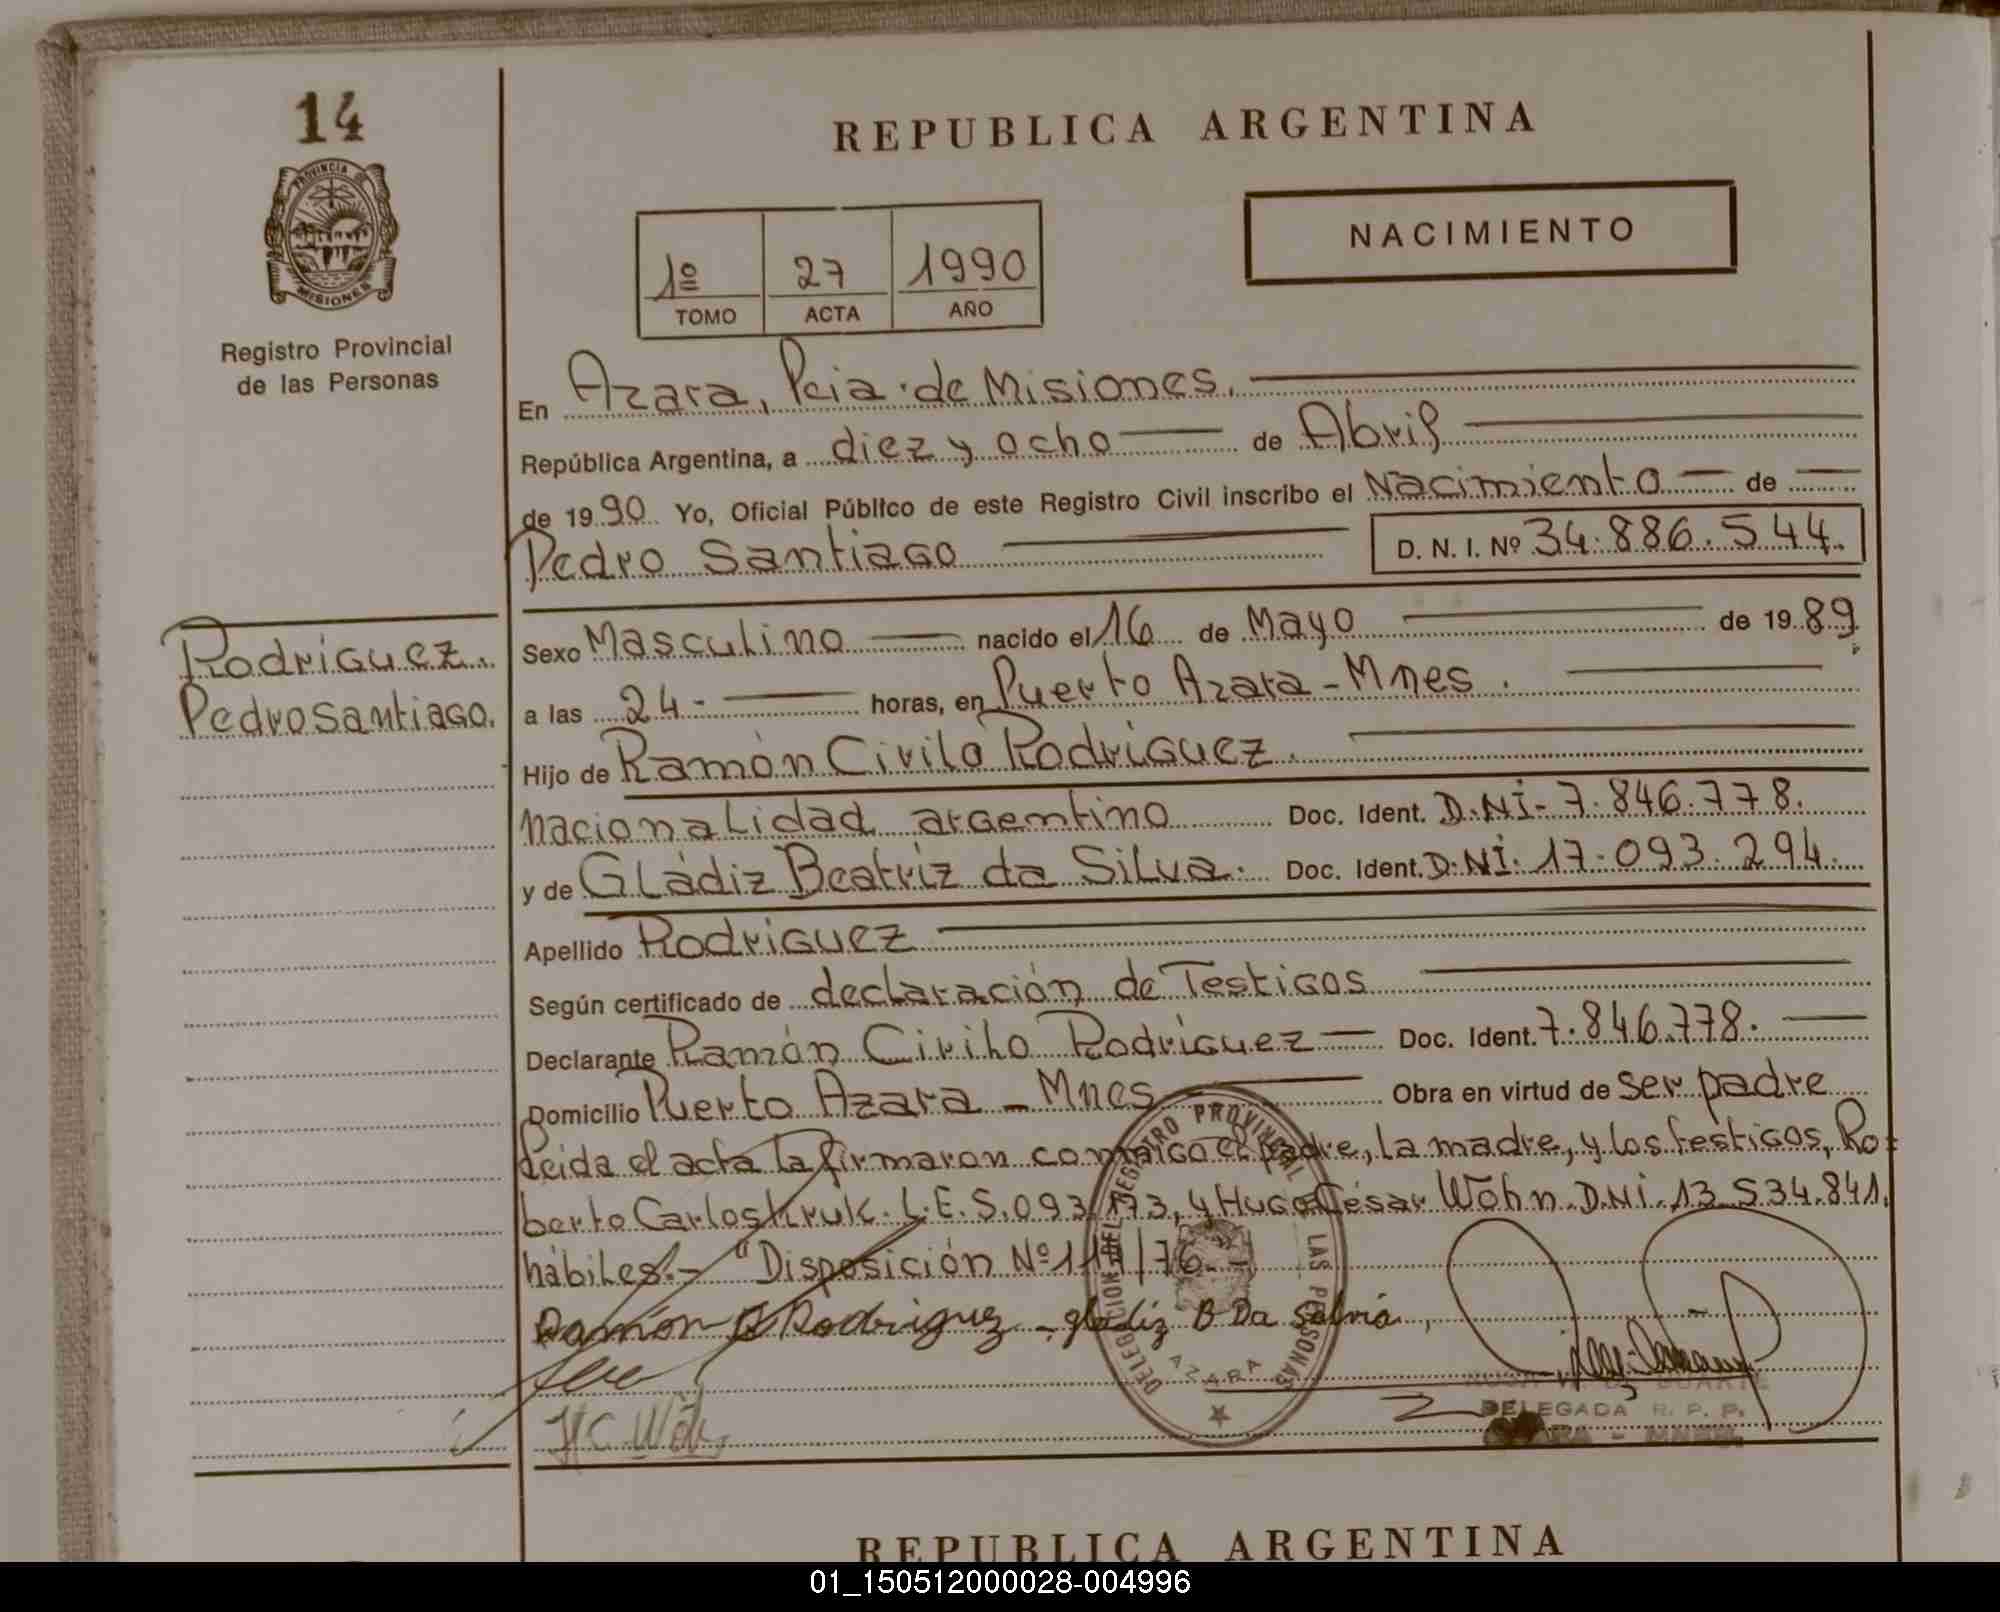 14
PROVINCIA DE
MISIONES
Registro Provincial
de las Personas
REPUBLICA ARGENTINA
NACIMIENTO
1º 27 1990
TOMO ACTA AÑO
En Azara, Pcia. de Misiones.
República Argentina, a diez y ocho de Abril
de 1990 Yo, Oficial Público de este Registro Civil inscribo el Nacimiento de
Pedro Santiago D. N. I. Nº 34.886.544.
Rodríguez.
Pedro Santiago.
Sexo Masculino nacido el 16 de Mayo de 1989
a las 24- horas, en Puerto Azara - Mnes.
Hijo de Ramón Cirilo Rodríguez.
nacionalidad argentino Doc. Ident. D.NI- 7.846.778.
y de Gládiz Beatríz da Silva. Doc. Ident. D.NI. 17.093.294.
Apellido Rodríguez
Según certificado de declaración de Testigos
Declarante Ramón Cirilo Rodríguez Doc. Ident. 7.846.778.
Domicilio Puerto Azara - Mnes Obra en virtud de ser padre
Leida el acta la firmaron conmigo el padre, la madre, y los testigos, Ro=
berto Carlos Kruk. L.E. 5.093.173, y Hugo César Wohn. D.NI. 13.534.841.
hábiles.- "Disposición Nº 117/76.-
Ramón C Rodriguez - gladiz B Da Selvia,
DELEGACION DEL REGISTRO PROVINCIAL DE LAS PERSONAS
AZARA
H C Woh
DELEGADA R. P. P.
REPUBLICA ARGENTINA
01_150512000028-004996